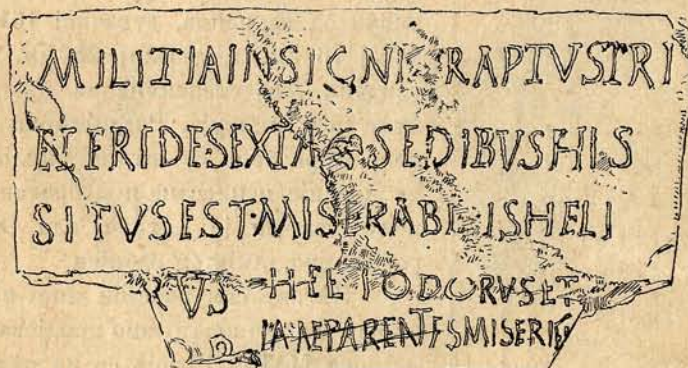 MILITIAINSIGNI RAPTVSTRI
SEDIBVSHIS
SITVSEST·MISERABILISHELI
RVS HELIODORVSET
PARENTESMISERI